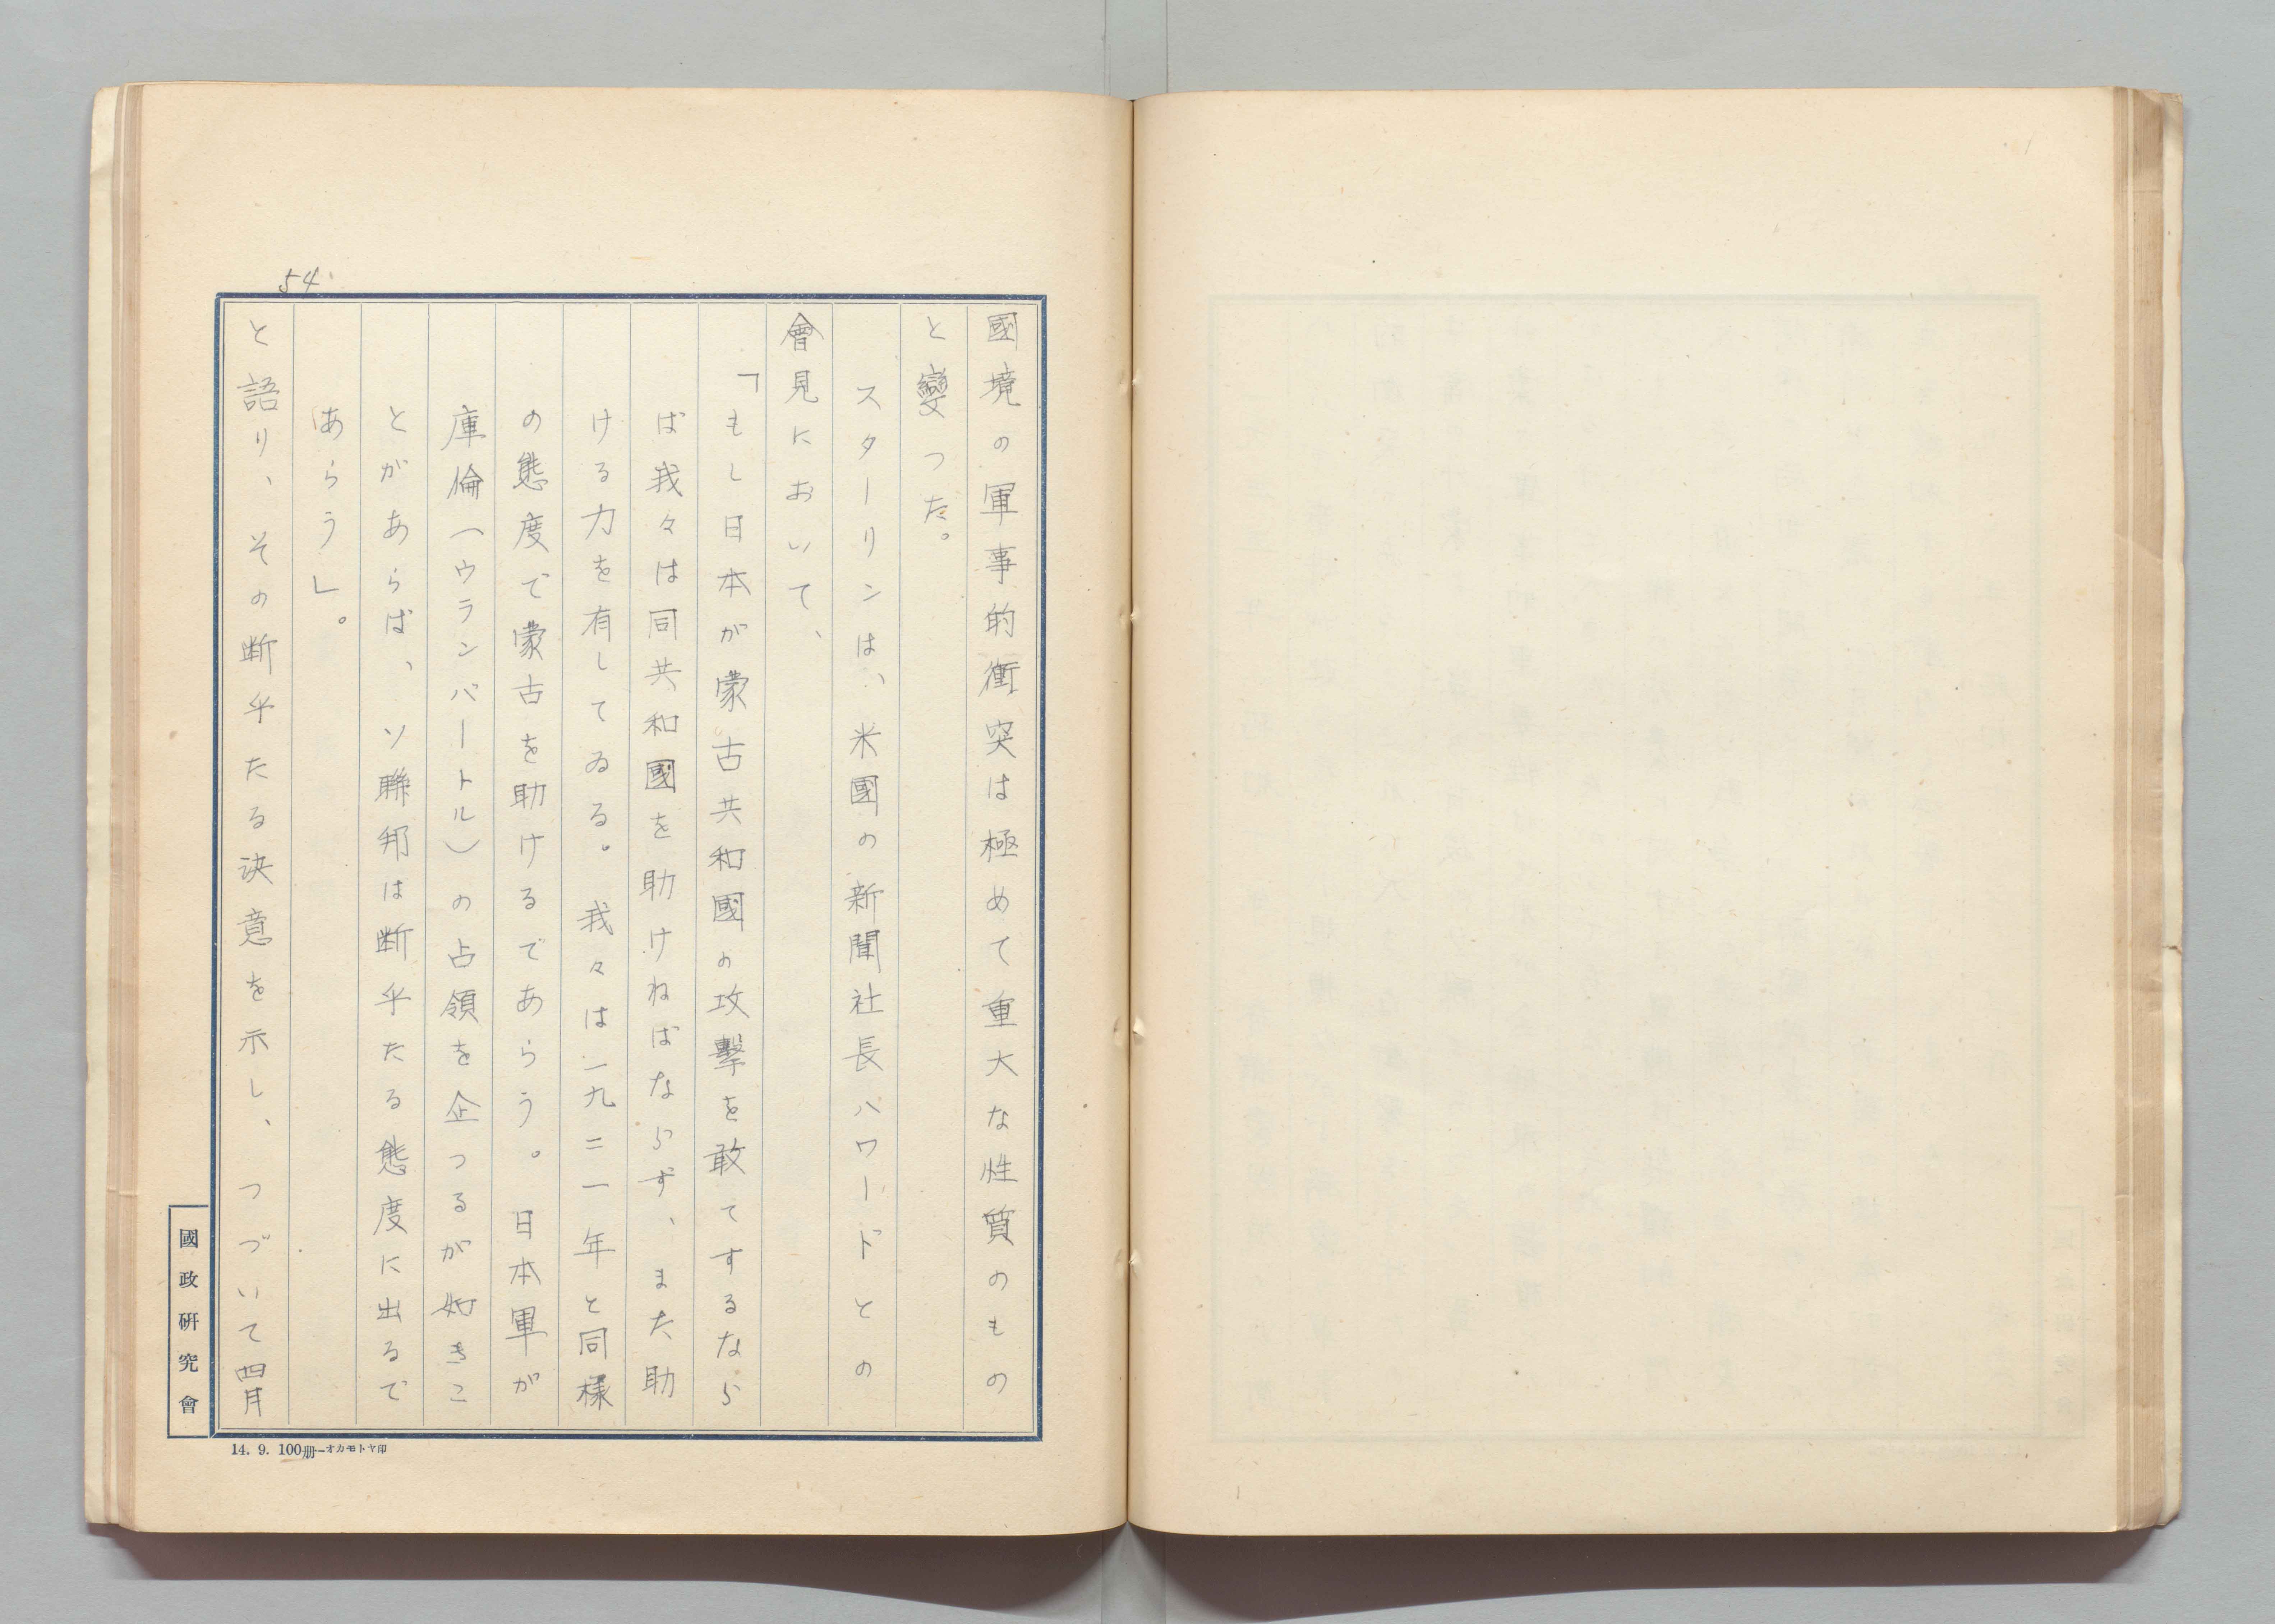 國境の軍事的衝突は極めて重大な性質のもの
と變つた。
スターリンは、米國の新聞社長ハワードとの
會見において、
「もし日本が蒙古共和國の攻擊を敢てするなら
ば我々は同共和國を助けねばならず、また助
ける力を有してゐる。我々は一九二一年と同樣
の態度で蒙古を助けるであらう。日本軍が
庫倫（ウランバートル）の占領を企つるが如きこ
とがあらば、ソ聯邦は断乎たる態度に出るで
あらう」。
と語り、その断乎たる決意を示し、つづいて四月
54
國政研究會
14. 9. 100册—オカモトヤ印